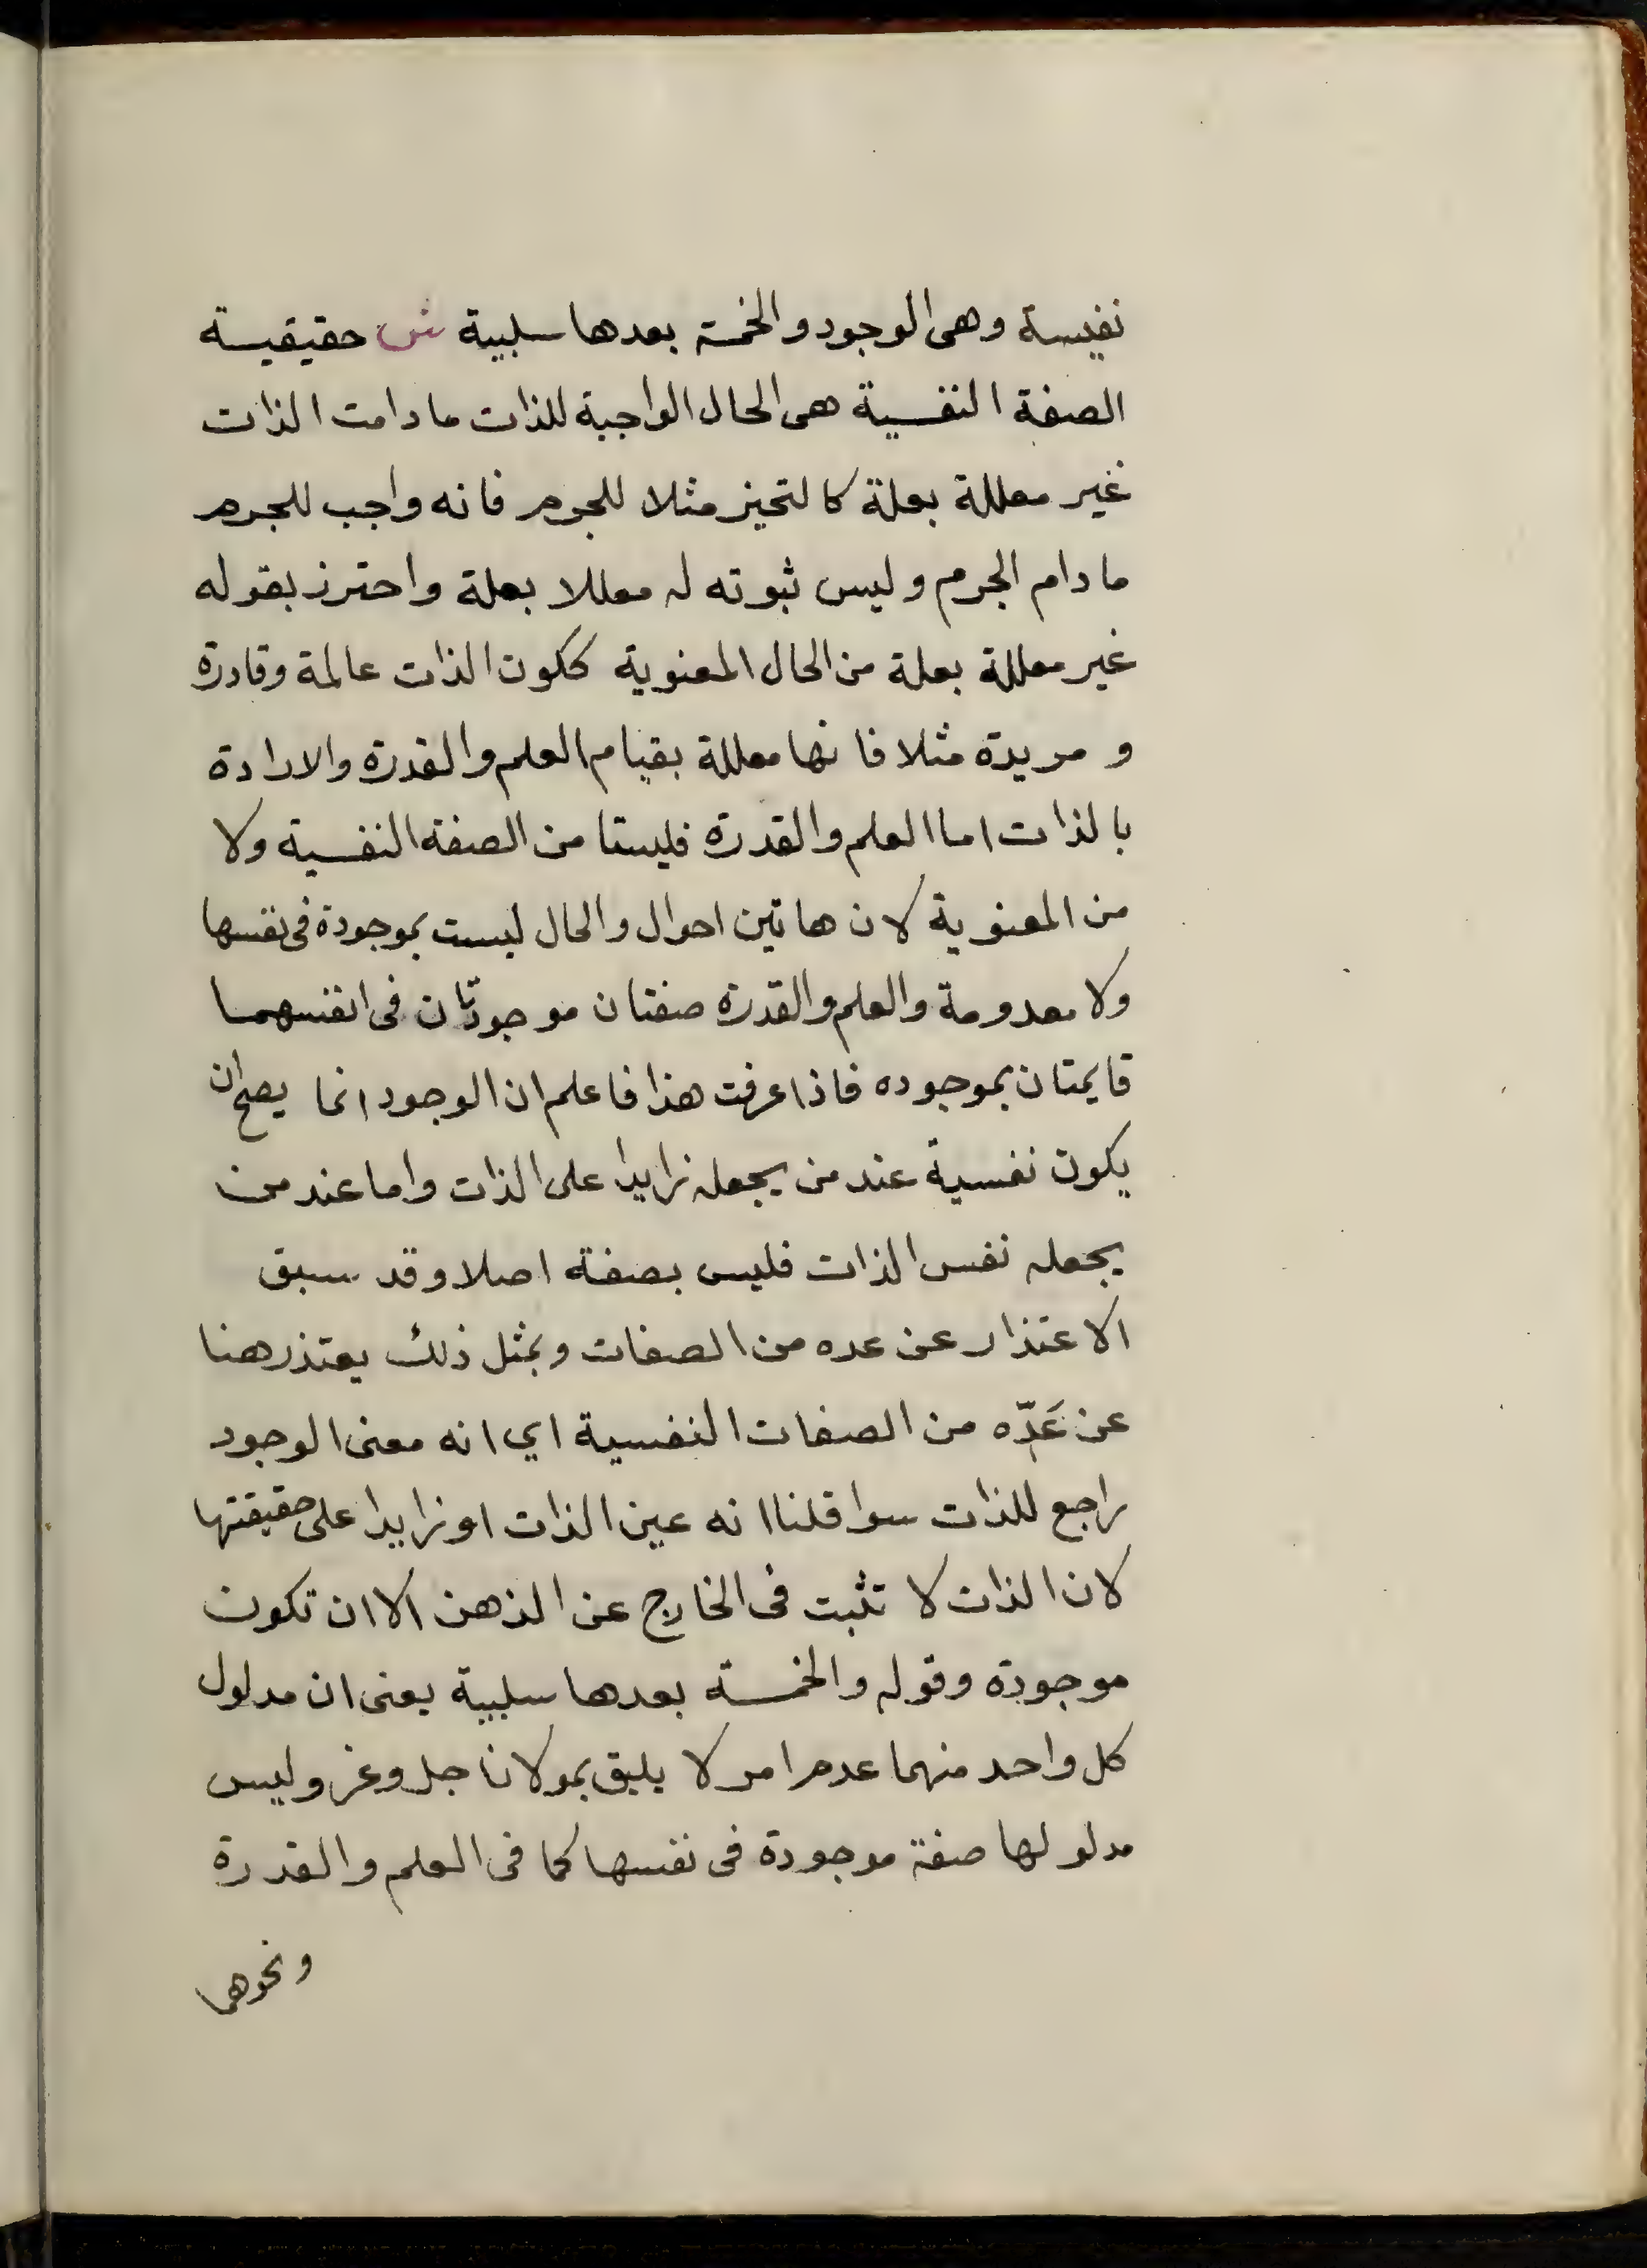 نفيسة وهى الوجود والخمسة بعدها سلبية ش حقيقيسة
الصفة النفسية هى الحال الواجبة للذات ما دامت الذات
غير معللة بعلة كالتحيز مثلا للجرم فانه واجب للجرم
ما دام الجرم وليس ثبوته له معللا بعلة واحترز بقوله
غير معللة بعلة من الحال المعنوية ككون الذات عالمة وقادرة
ومريدة مثلا فانها معللة بقيام العلم والقدرة والارادة
بالذات اما العلم والقدرة فليستا من الصفة النفسية ولا
من المعنوية لان هاتين احوال والحال ليست بموجودة فى نفسها
ولا معدومة والعلم والقدرة صفتان موجودتان فى انفسهما
قايمتان بموجوده فاذا عرفت هذا فاعلم ان الوجود انما يصح ان
يكون نفسية عند من يجعله زايدا على الذات واما عند من
يجعله نفس الذات فليس بصفة اصلا وقد سبق
الاعتذار عن عده من الصفات وبمثل ذلك يعتذر هنا
عن عَدِّه من الصفات النفسية اي انه معنى الوجود
راجع للذات سوا قلنا انه عين الذات او زايدا على حقيقتها
لان الذات لا تثبت فى الخارج عن الذهن الا ان تكون
موجودة وقوله والخمسة بعدها سلبية يعنى ان مدلول
كل واحد منهما عدم امر لا يليق بمولانا جل وعز وليس
مدلولها صفة موجودة فى نفسها كما فى العلم والقدرة
ونحوهما